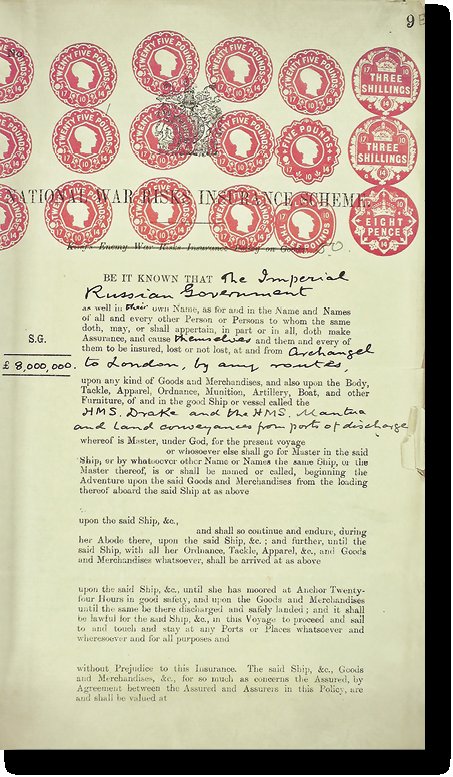 9
TWENTY FIVE POUNDS TWENTY FIVE POUNDS TWENTY FIVE POUNDS TWENTY FIVE POUNDS THREE SHILLINGS
TWENTY FIVE POUNDS TWENTY FIVE POUNDS TWENTY FIVE POUNDS FIVE POUNDS THREE SHILLINGS
17 10 14
TWENTY FIVE POUNDS TWENTY FIVE POUNDS TWENTY FIVE POUNDS POUNDS EIGHT PENCE
NATIONAL WAR RISKS INSURANCE SCHEME.
King's Enemy War Risks Insurance Policy on Goods.
BE IT KNOWN THAT The Imperial
Russian Government
as well in their own Name, as for and in the Name and Names
of all and every other Person or Persons to whom the same
doth, may, or shall appertain, in part or in all, doth make
S.G.
Assurance, and cause themselves and them and every of
them to be insured, lost or not lost, at and from Archangel
£ 8,000,000. to London, by any routes,
upon any kind of Goods and Merchandises, and also upon the Body,
Tackle, Apparel, Ordnance, Munition, Artillery, Boat, and other
Furniture, of and in the good Ship or vessel called the
HMS. Drake and the HMS. Mantua
and land conveyances from ports of discharge
whereof is Master, under God, for the present voyage
or whosoever else shall go for Master in the said
Ship, or by whatsoever other Name or Names the same Ship, or the
Master thereof, is or shall be named or called, beginning the
Adventure upon the said Goods and Merchandises from the loading
thereof aboard the said Ship at as above
upon the said Ship, &c.,
and shall so continue and endure, during
her Abode there, upon the said Ship, &c.; and further, until the
said Ship, with all her Ordnance, Tackle, Apparel, &c., and Goods
and Merchandises whatsoever, shall be arrived at as above
upon the said Ship, &c., until she has moored at Anchor Twenty-
four Hours in good safety, and upon the Goods and Merchandises
until the same be there discharged and safely landed; and it shall
be lawful for the said Ship, &c., in this Voyage to proceed and sail
to and touch and stay at any Ports or Places whatsoever and
wheresoever and for all purposes and
without Prejudice to this Insurance. The said Ship, &c., Goods
and Merchandises, &c., for so much as concerns the Assured, by
Agreement between the Assured and Assurers in this Policy, are
and shall be valued at